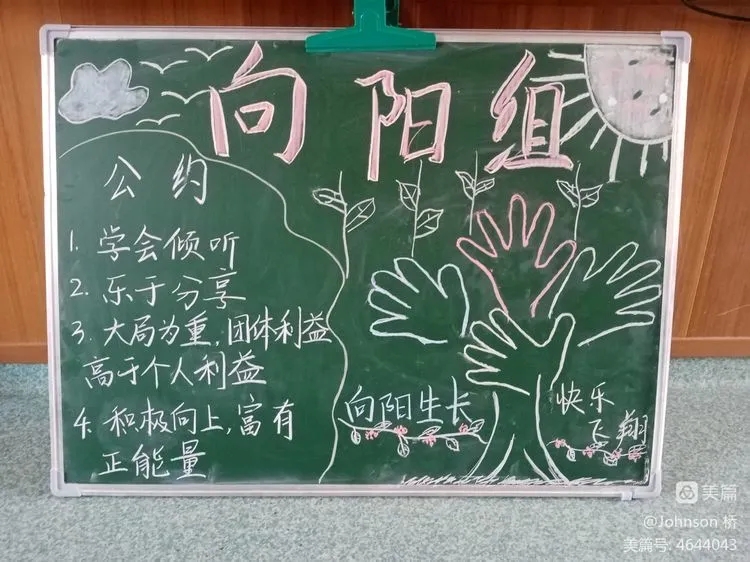 向阳组
公约
1. 学会倾听
2. 乐于分享
3. 大局为重,团体利益
高于个人利益
4. 积极向上,富有
正能量
向阳生长
快乐
飞翔
美篇
@Johnson 桥
美篇号: 4644043